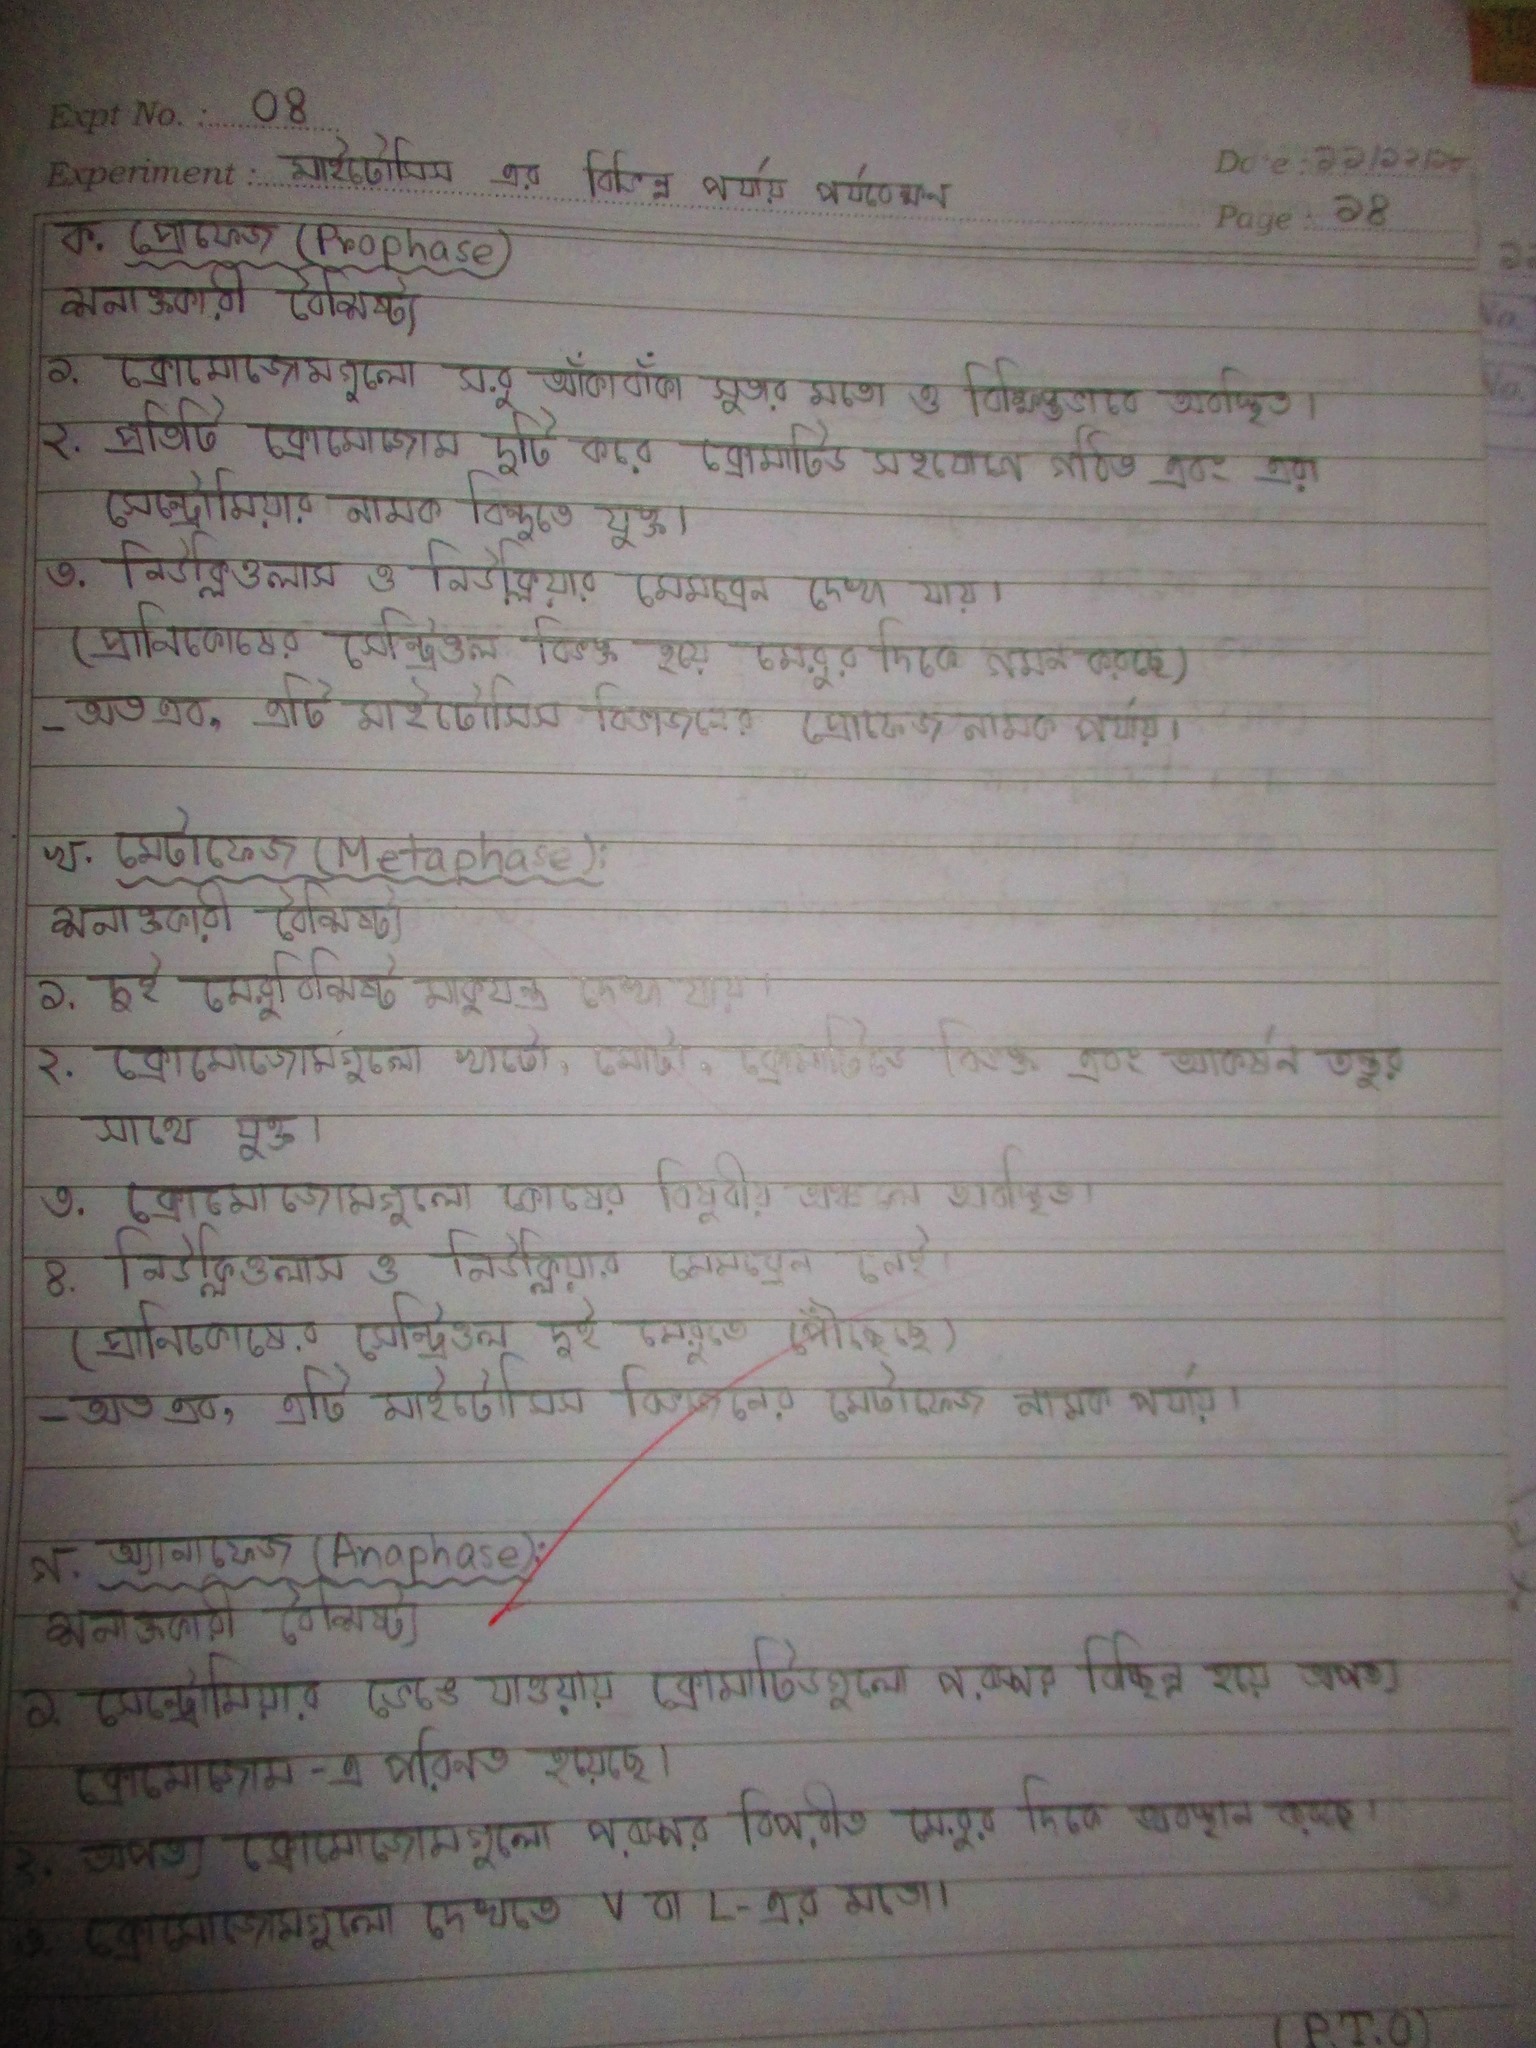 Expt No. : 08
Experiment : মাইটোসিস এর বিভিন্ন পর্যায় পর্যবেক্ষন
Date : ২২/১২/২০
Page : ১৪
ক. প্রোফেজ (Prophase)
শনাক্তকারী বৈশিষ্ট্য
১. ক্রোমোজোমগুলো সরু আঁকাবাঁকা সুতার মতো ও বিক্ষিপ্তভাবে অবস্থিত।
২. প্রতিটি ক্রোমোজোম দুটি করে ক্রোমাটিড সহযোগে গঠিত এবং এরা
সেন্ট্রোমিয়ার নামক বিন্দুতে যুক্ত।
৩. নিউক্লিওলাস ও নিউক্লিয়ার মেমব্রেন দেখা যায়।
(প্রানিকোষের সেন্ট্রিওল বিভক্ত হয়ে মেরুর দিকে গমন করছে)
- অতএব, এটি মাইটোসিস বিভাজনের প্রোফেজ নামক পর্যায়।
খ. মেটাফেজ (Metaphase):
শনাক্তকারী বৈশিষ্ট্য
১. দুই মেরুবিশিষ্ট মাকুযন্ত্র দেখা যায়।
২. ক্রোমোজোমগুলো খাটো, মোটা, ক্রোমাটিডে বিভক্ত এবং আকর্ষন তন্তুর
সাথে যুক্ত।
৩. ক্রোমোজোমগুলো কোষের বিষুবীয় অঞ্চলে অবস্থিত।
৪. নিউক্লিওলাস ও নিউক্লিয়ার মেমব্রেন নেই।
(প্রানিকোষের সেন্ট্রিওল দুই মেরুতে পৌঁছেছে)
- অতএব, এটি মাইটোসিস বিভাজনের মেটাফেজ নামক পর্যায়।
গ. অ্যানাফেজ (Anaphase):
শনাক্তকারী বৈশিষ্ট্য
১. সেন্ট্রোমিয়ার ভেঙে যাওয়ায় ক্রোমাটিডগুলো পরস্পর বিচ্ছিন্ন হয়ে অপত্য
ক্রোমোজোম-এ পরিনত হয়েছে।
২. অপত্য ক্রোমোজোমগুলো পরস্পর বিপরীত মেরুর দিকে অবস্থান করছে।
৩. ক্রোমোজোমগুলো দেখতে V বা L-এর মতো।
(P.T.O)